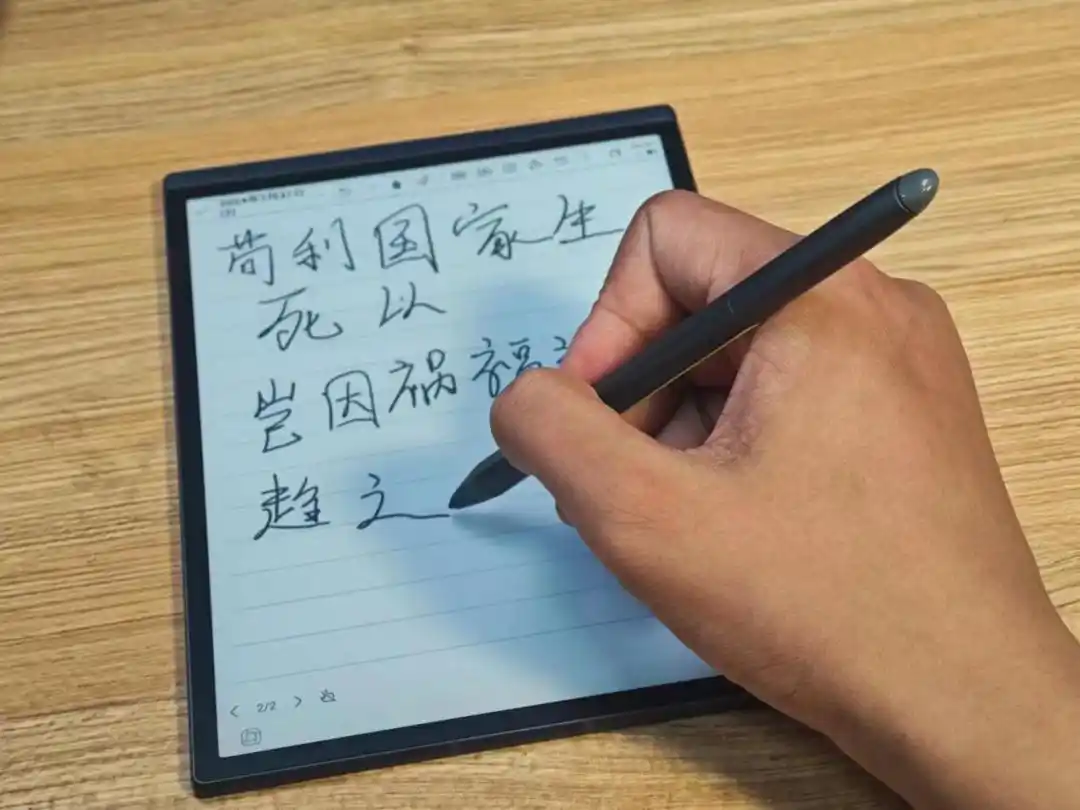 苟利国家生
死以
岂因祸福
趋之
2/2